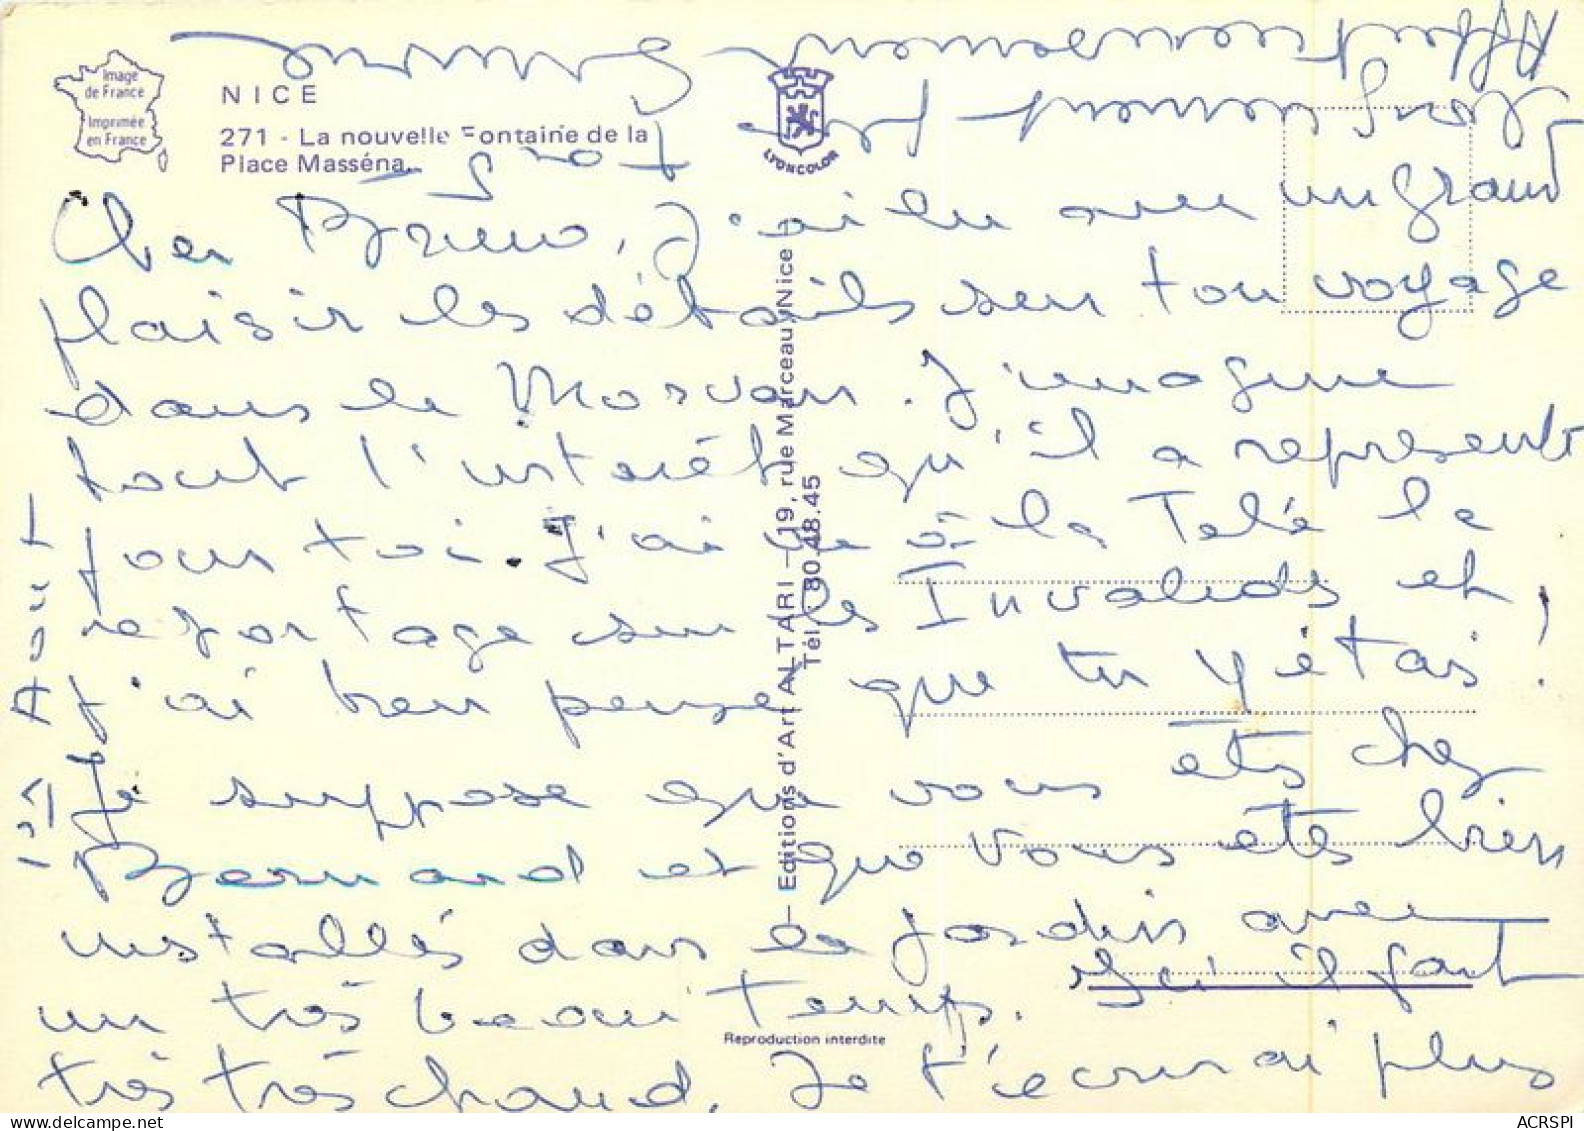 Image
de France
Imprimée
en France
NICE
271 - La nouvelle Fontaine de la
Place Masséna
LYONCOLOR
— Editions d'Art ALTARI — 19, rue Marceau, Nice
Tél. 80.48.45
Reproduction interdite
1er Aout
Cher Bruno, J'ai lu avec un grand
plaisir les détails sur ton voyage
dans le Morvan. J'imagine
tout l'intérêt qu'il a représenté
pour toi. J'ai vu à la Télé le
reportage sur les Invalides et
j'ai bien pensé que tu y étais !
Je suppose que vous êtes chez
Bernard et que vous êtes bien
installés dans le jardin avec
un très beau temps. Ici il fait
très très chaud. Je t'écrirai plus
longuement plus tard
Affectueusement
ACRSPI